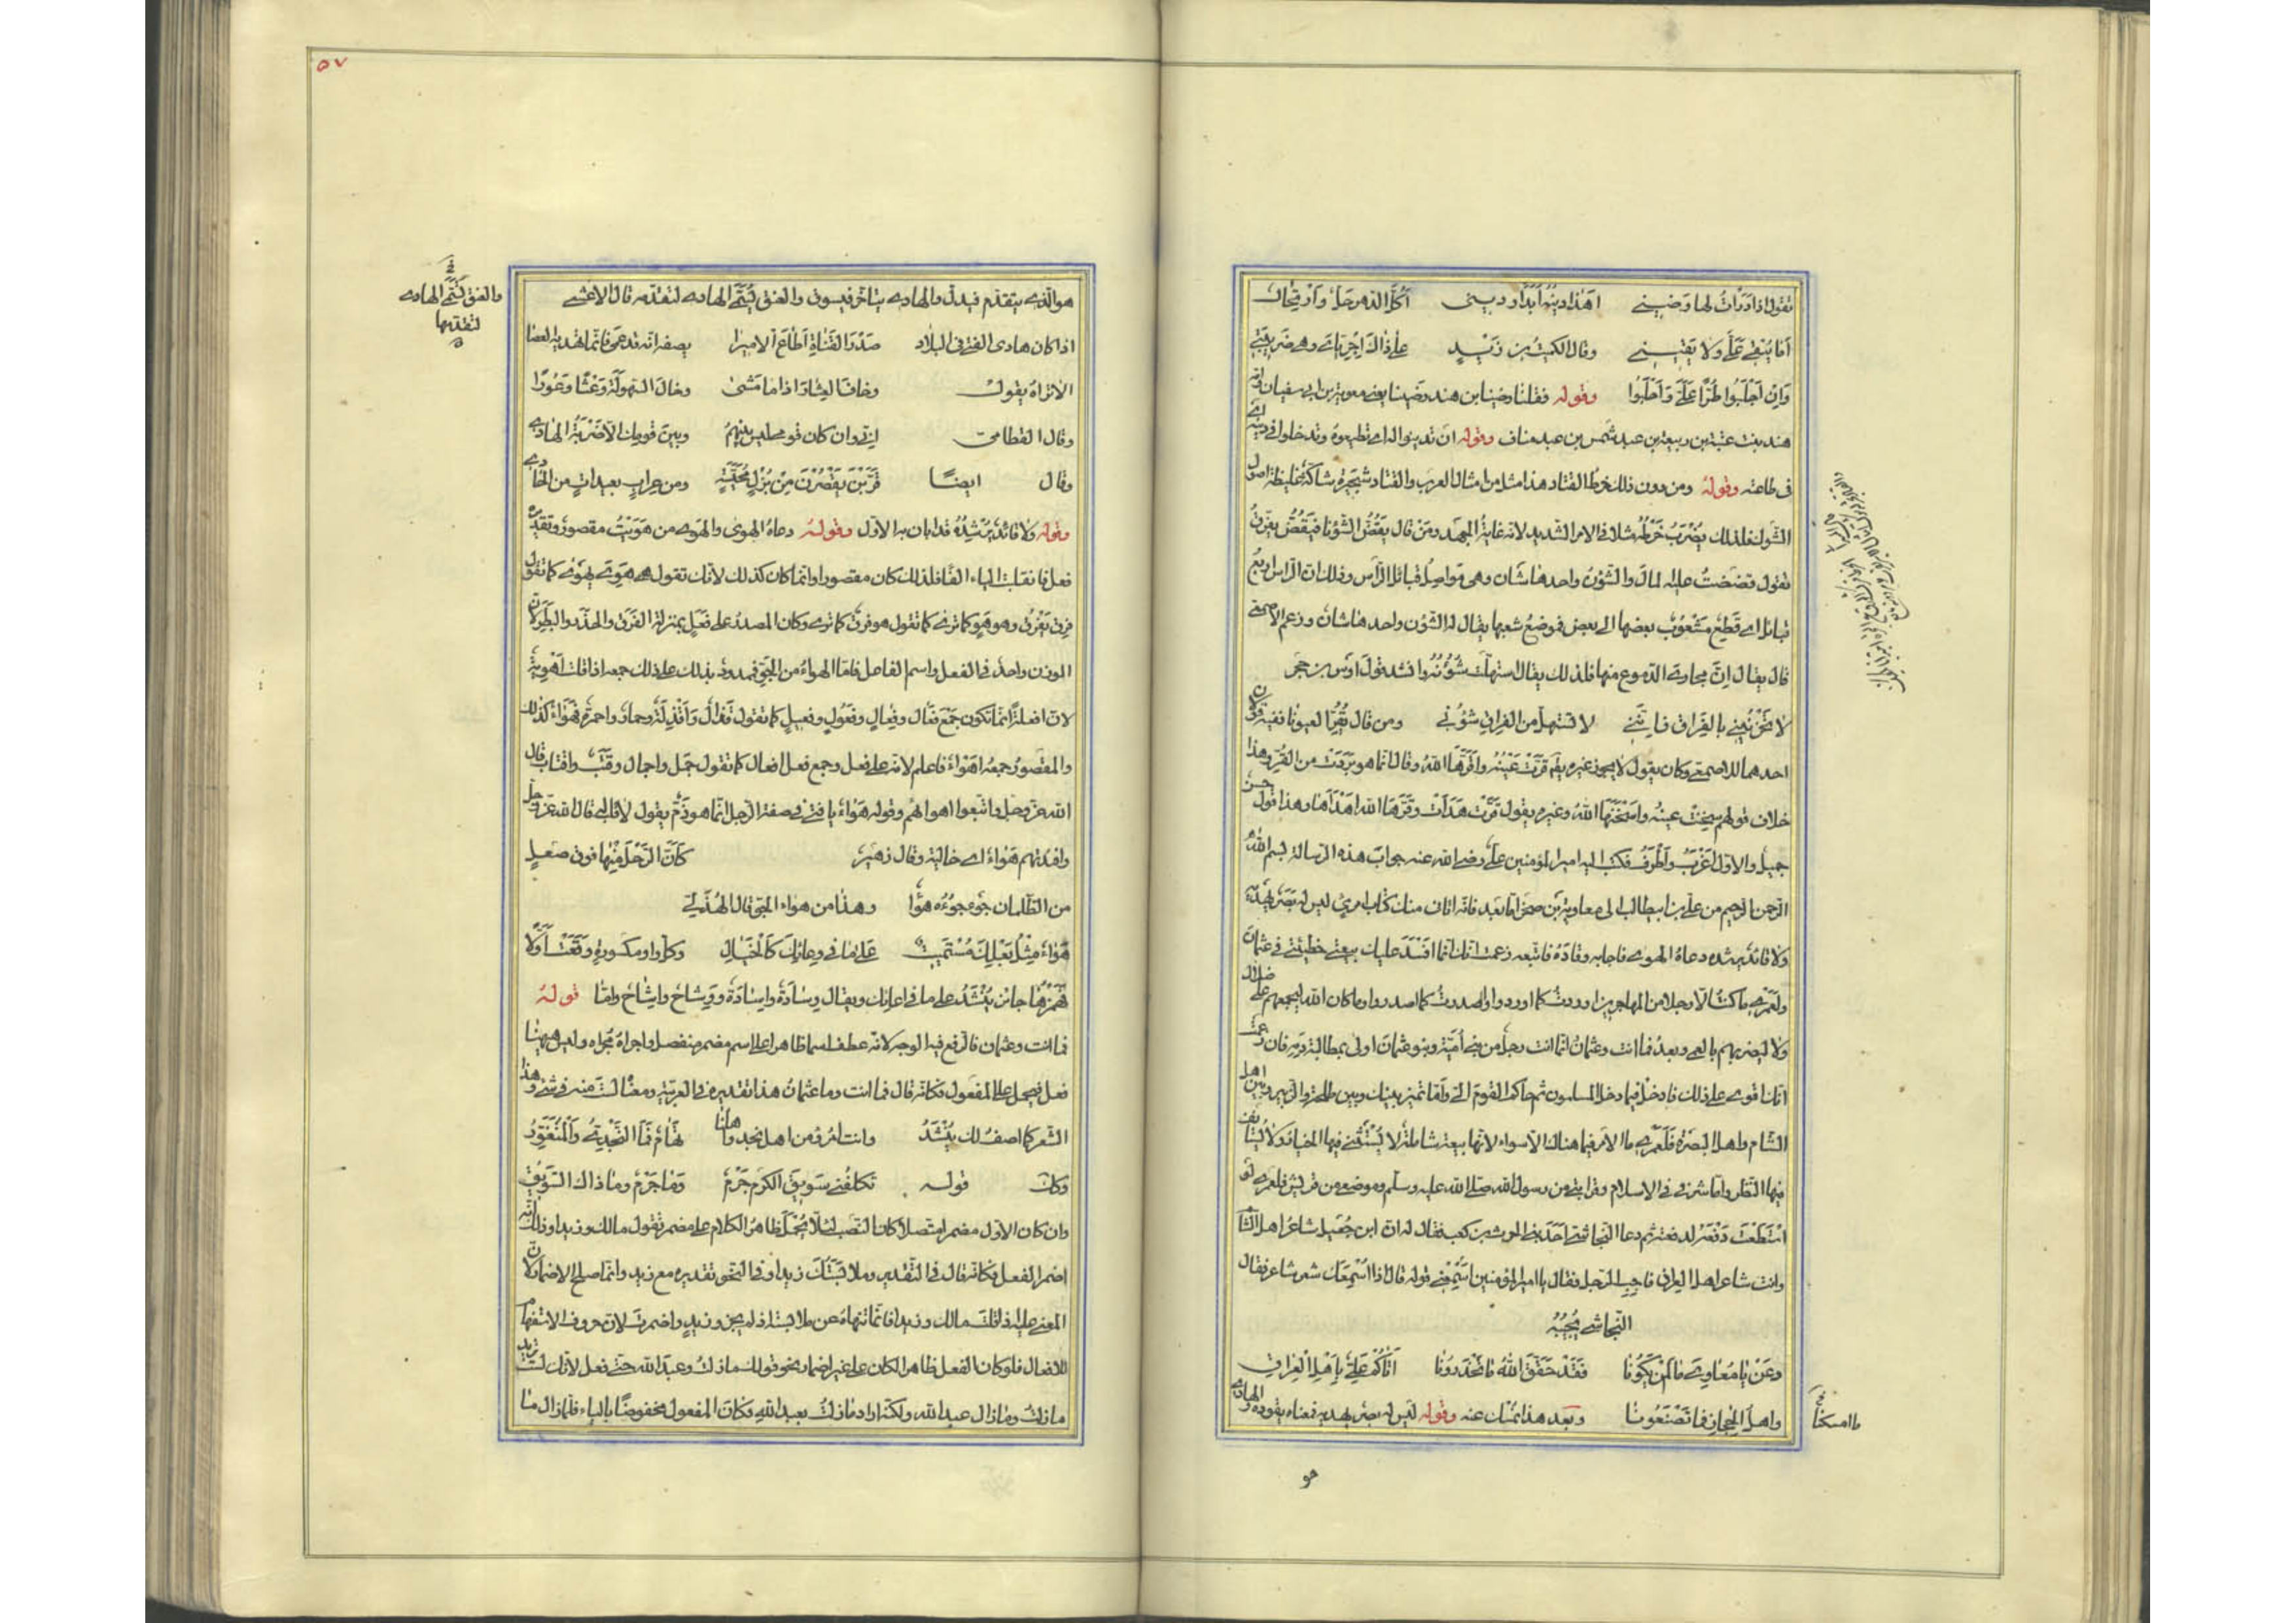 تقول اذا درأت لها وضيني اهذا دينه ابدا وديني اكل الدهر حل وارتحال
اما يبقى علي ولا يقيني وقال الكميت بن زيد على ذاك اجرياي وهي ضريبتي
وان اجلبوا طرا علي واحلبوا وقوله فقلنا رضينا ابن هند رضينا يعني معوية بن ابي سفيان وامه
هند بنت عتبة بن ربيعة بن عبد شمس بن عبد مناف وقوله ان تدينوا له اي تطيعوه وتدخلوا في دينه اي
في طاعته وقوله ومن دون ذلك خرط القتاد هذا مثل من امثال العرب والقتاد شجرة شاكة غليظة اصول
الشوك فلذلك يضرب خرطه مثلا في الامر الشديد لانه غاية الجهد ومن قال يفض الشؤنا فيفض يفرق
تقول فضضت عليه المال والشؤن واحدها شان وهي مواصل قبائل الراس وذلك ان الراس اربع
قبائل اي قطع مشعوب بعضها الى بعض فموضع شعبها يقال له الشؤن واحدها شان وزعم الاصمعي
قال يقال ان مجاري الدموع منها فلذلك يقال استهلت شؤنه وانشد قول اوس بن حجر
لا تحزنيني بالفراق فانني لا تستهل من الفراق شؤني ومن قال يقر العيونا ففيه قولان
احدهما للاصمعي وكان يقول لا يجوز غيره يقر قرت عينه واقرها الله وقال انما هو بردت من القر وهذا
خلاف قولهم سخنت عينه واسخنها الله وغيره يقول قرت هدأت وقرها الله اهدأها وهذا قول حسن
جميل والاول اغرب واطرف فكتب اليه امير المؤمنين علي رضي الله عنه جواب هذه الرسالة بسم الله
الرحمن الرحيم من علي بن ابيطالب الى معاوية بن صخر اما بعد فانه اتاني منك كتاب امرئ ليس له بصر يهديه
ولا قائد يرشده دعاه الهوى فاجابه وقاده فاتبعه زعمت انك انما افسد عليك بيعتي خطيئتي في عثمان
ولعمري ما كنت الا رجلا من المهاجرين اوردت كما اوردوا واصدرت كما اصدروا وما كان الله ليجمعهم على ضلال
ولا ليضربهم بالعمى وبعد فما انت وعثمان انما انت رجل من بني امية وبنو عثمان اولى بمطالبة دمه فان زعمت
انك اقوى على ذلك فادخل فيما دخل المسلمون ثم حاكم القوم الي واما تمييزك بينك وبين طلحة والزبير وبين اهل
الشام واهل البصرة فلعمري ما الامر فيما هناك الا سواء لانها بيعة شاملة لا يستثنى فيها الخيار ولا يستانف
فيها النظر واما شرفي في الاسلام وقرابتي من رسول الله صلى الله عليه وسلم وموضعي من قريش فلعمري لو
استطعت دفعه لدفعته ثم دعا النجاشي احد بني الحرث بن كعب فقال له ان ابن جعيل شاعر اهل الشام
وانت شاعر اهل العراق فاجب الرجل فقال يا امير المؤمنين اسمعني قوله قال اذا اسمعك شعر شاعر فقال
النجاشي يجيبه
دعن يا معاوي ما لن يكونا فقد حقق الله ما تحذرونا اتاكم علي باهل العراق
واهل الحجاز فما تصنعونا وبعد هذا نمسك عنه وقوله ليس له بصر يهديه فمعناه يقوده والهادي
ما امسكنا
هو
٥٧
هو الذي يتقدم فيدل والهادي يتاخر فيسوق والعنق يسمى الهادي لتقدمه قال الاعشى
والعنق يسمى الهادي
لتقدمها
اذا كان هادي الفتى في البلاد صدر القناة اطاع الاميرا يصف انه قد عمي فانما تهديه العصا
الا تراه يقول وخاف العثار اذا ما مشى وخال السهولة وعثا وعورا
وقال القطامي اني وان كان قومي ليس بينهم وبين قومك الا ضربة الهادي
وقال ايضا قربن يقصرن من بزل مخيسة ومن عراب بعيدات من الحادي
وقوله ولا قائد يرشده قد ابان به الاول وقوله دعاه الهوى والهوى من هويت مقصور وتقديره
فعل فانقلبت الياء الفا فلذلك كان مقصورا وانما كان كذلك لانك تقول هوي يهوى كما تقول
فرق يفرق وهو هو كما ترى كما تقول هو فرق كما ترى وكان المصدر على فعل بمنزلة الفرق والحذر والبطر لان
الوزن واحد في الفعل واسم الفاعل فاما الهواء من الجو فممدود يدلك على ذلك جمعه اذا قلت اهوية
لان افعلة انما تكون جمع فعال وفعال وفعول وفعيل كما تقول قذال واقذلة وحمار واحمرة فهواء كذلك
والمقصور جمعه اهواء فاعلم لانه على فعل وجمع فعل افعال كما تقول جمل واجمال وقتب واقتاب قال
الله عز وجل واتبعوا اهواءهم وقوله هواء يا فتى في صفة الرجل انما هو ذم يقول لا قلب له قال الله عز وجل
وافئدتهم هواء اي خالية وقال زهير كأن الرحل منها فوق صعل
من الظلمان جؤجؤه هواء وهذا من هواء الجو قال الهذلي
هواء مثل بعلك مستميت على ما في وعائك كالخيال وكل واو مكسورة وقعت اولا
فهمزها جائز ينشد على ما في اعائك ويقال وسادة واسادة ووشاح واشاح واما قوله
فما انت وعثمان فالرفع فيه الوجه لانه عطف اسما ظاهرا على اسم مضمر منفصل واجراه مجراه وليس ههنا
فعل فيحمل على المفعول فكانه قال فما انت وما عثمان هذا تقديره في العربية ومعناه لست منه في شئ وهذا
الشعر كما اصف لك ينشد وانت امرؤ من اهل نجد واهلنا تهام فما النجدي والمتغور
وكان قوله تكلفني سويق الكرم جرم وما جرم وما ذاك السويق
وان كان الاول مضمرا متصلا كان النصب لئلا يحمل ظاهر الكلام على مضمر تقول مالك وزيدا وذلك انه
اضمر الفعل فكانه قال في التقدير وملابستك زيدا وفي النحو تقديره مع زيد وانما صلح الاضمار لان
المعنى عليه اذا قلت مالك وزيدا فانما تنهاه عن ملابسته اذ لم يجز وزيد واضمرت لان حروف الاستفهام
للافعال فلو كان الفعل ظاهرا لكان على غير اضمار نحو قولك ما زلت وعبد الله حتى فعل لانك لست تريد
ما زلت وما زال عبد الله ولكنه اراد ما زلت بعبد الله فكان المفعول مخفوضا بالباء فلما زال ما